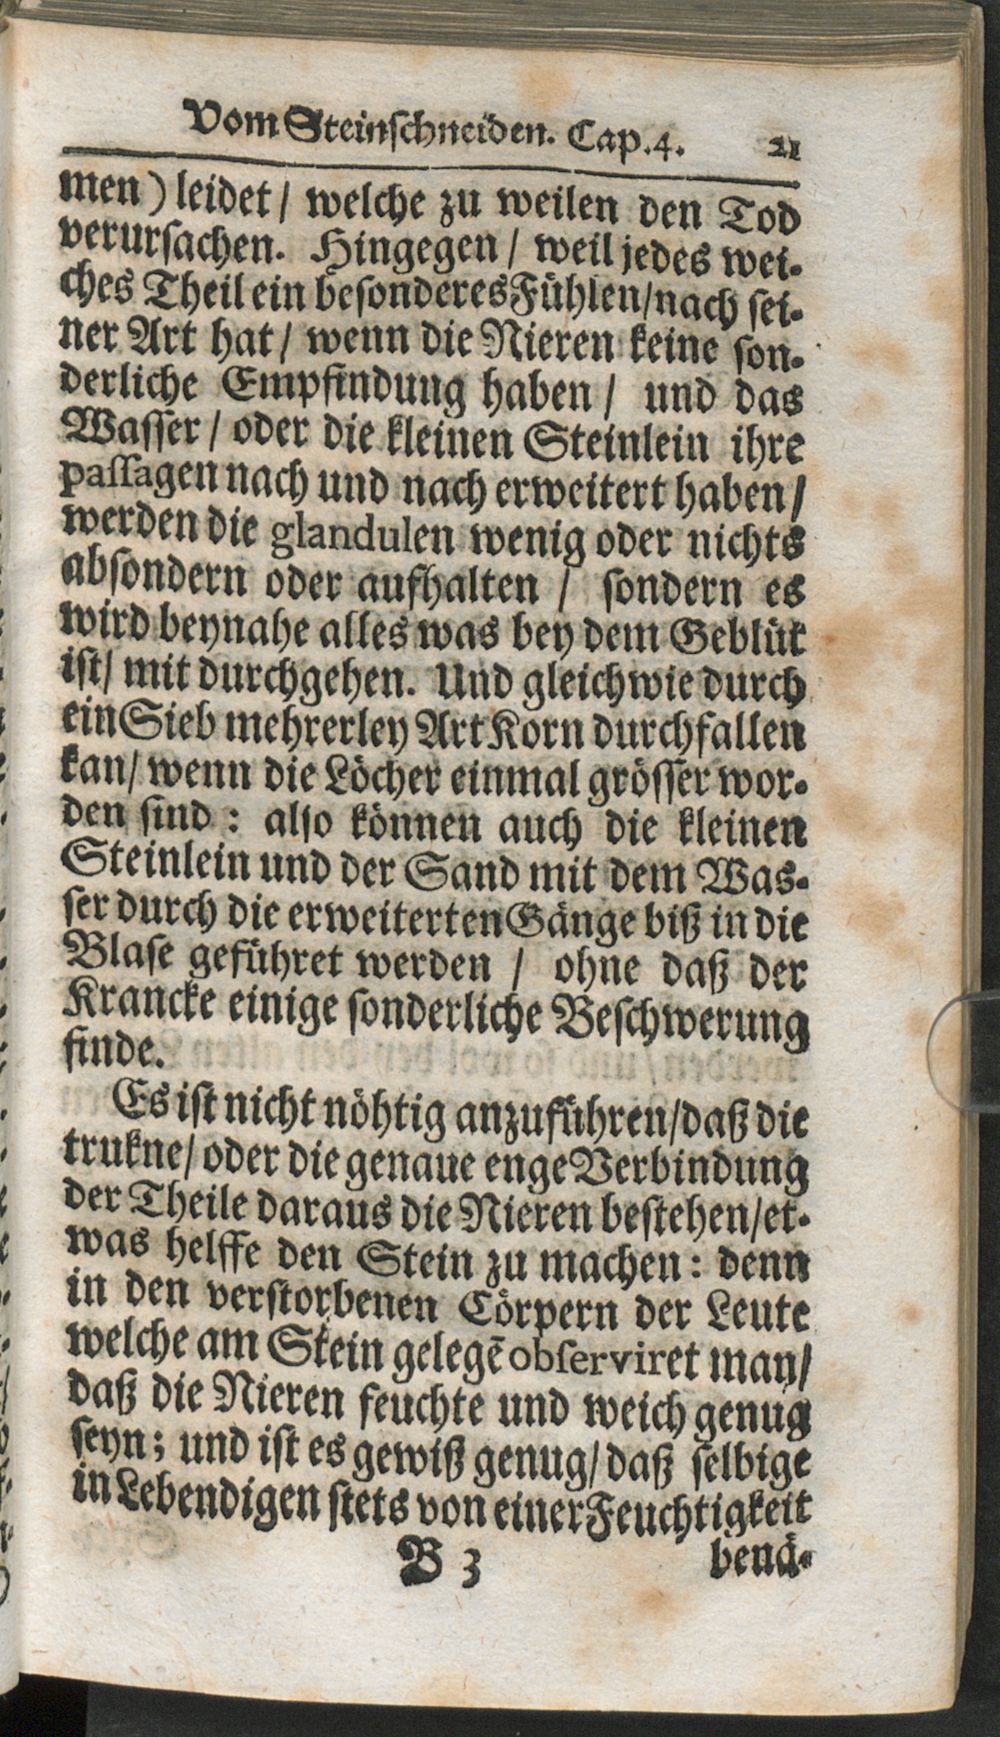 Vom Steinschneiden. Cap. 4. 21
men) leidet / welche zu weilen den Tod
verursachen. Hingegen / weil jedes wei-
ches Theil ein besonderes Fühlen / nach sei-
ner Art hat / wenn die Nieren keine son-
derliche Empfindung haben / und das
Wasser / oder die kleinen Steinlein ihre
passagen nach und nach erweitert haben /
werden die glandulen wenig oder nichts
absondern oder aufhalten / sondern es
wird beynahe alles was bey dem Geblüt
ist / mit durchgehen. Und gleichwie durch
ein Sieb mehrerley Art Korn durchfallen
kan / wenn die Löcher einmal grösser wor-
den sind : also können auch die kleinen
Steinlein und der Sand mit dem Was-
ser durch die erweiterten Gänge biß in die
Blase geführet werden / ohne daß der
Krancke einige sonderliche Beschwerung
finde.
Es ist nicht nöhtig anzuführen / daß die
trukne / oder die genaue enge Verbindung
der Theile daraus die Nieren bestehen / et-
was helffe den Stein zu machen : denn
in den verstorbenen Cörpern der Leute
welche am Stein gelegē observiret man /
daß die Nieren feuchte und weich genug
seyn ; und ist es gewiß genug / daß selbige
in Lebendigen stets von einer Feuchtigkeit
B 3 benä-